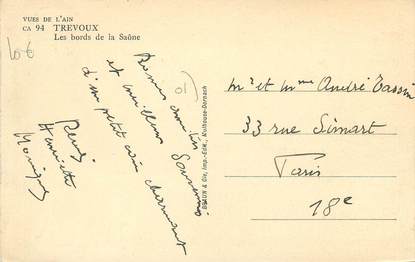 VUES DE L'AIN
CA 94 TREVOUX
Les bords de la Saône
et meilleurs Souvenirs
d'un petit coin charmant
Henriette
BRAUN & Cie, Imp.-Edit., Mulhouse-Dornach
Mr et Mme André Tassin
33 rue Simart
Paris
18e